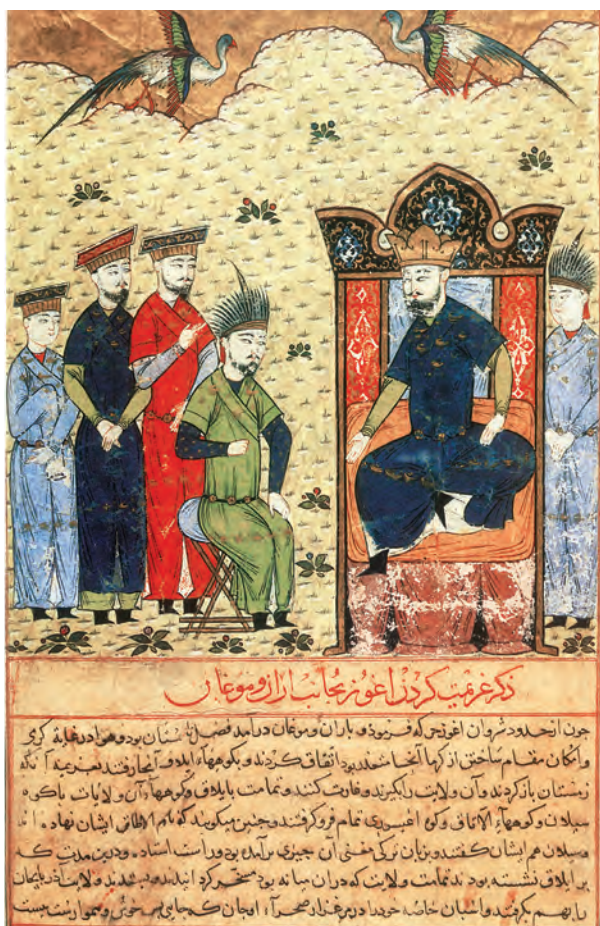 ذکر عزیمت کردن اغوز بجانب اران و موغان
جون از حدود شروان اغوز حرکت فرمود و باران و موغان درآمد فصل تابستان بود و هوا در غایة کرمی
وامکان مقام ساختن از کرما آنجا متعذر بود اتفاق کردند و بکوههاء ایلاق آنجا رفتند بعزیمة آنکه
زمستان باز کردند و آن ولایت را بکیرند و غارت کنند و تمامت بایلاق و کوههاء آن ولایات باکوه
سبلان و کوههاء الاتاق و کوه تمام فروکرفتند و جنین میکویند که نام الاطاق ایشان نهاده اند
و سبلان هم ایشان کفتند و بزبان ترکی معنی آن جیزی برآمده بود و راست استاده و درین مدت که
بر ایلاق نشسته بودند تمامت ولایت که دران میانه بود مسخر کردانیدند و بستدند و ولایت اذربیجان
را بهم بکرفتند و اسبان خاصه خود را در مرغزار صحراء اوجان که جایی بس خوش و هموارست ببست